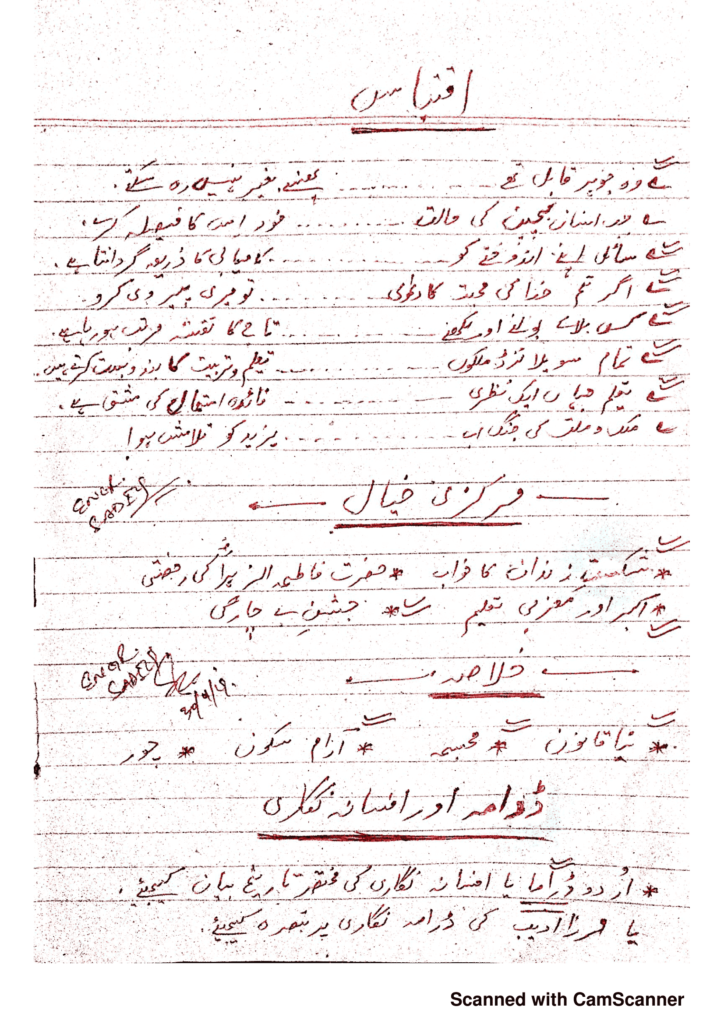 اقتباس
وہ جوہر قابل تھے ............ بغیر نہیں رہ سکتے۔
ہر انسان بچپن کی حالت ........ خود اس کا فیصلہ کرے۔
سائل اپنے اندوختے کو ........ کامیابی کا ذریعہ گردانتا ہے۔
اگر تم خدا کی محبت کا دعویٰ ........ تو میری پیروی کرو۔
کس بلا کے بولنے اور لکھنے ........ تاج کا نقشہ مرتب ہو رہا ہے۔
تمام سویلائزڈ ملکوں ........ تعلیم و تربیت کا بندوبست کرتے ہیں۔
تعلیم جہاں ایک نظری ........ فائدہ استعمال کی مشق ہے۔
ملک و ملت کی جنگ اب ........ یزید کو تلاش ہوا
مرکزی خیال
ENGR. SADEY
* شکست زنداں کا خواب * حضرت فاطمۃ الزہراؓ کی رخصتی
* اکبر اور مغربی تعلیم * جشنِ بے چارگی
ENGR SADEY
خلاصہ
* نیا قانون * مجسمہ * آرام سکون * چور
ڈرامہ اور افسانہ نگاری
* اُردو ڈراما یا افسانہ نگاری کی مختصر تاریخ بیان کیجیئے۔
یا مرزا ادیب کی ڈرامہ نگاری پر تبصرہ کیجیئے۔
Scanned with CamScanner